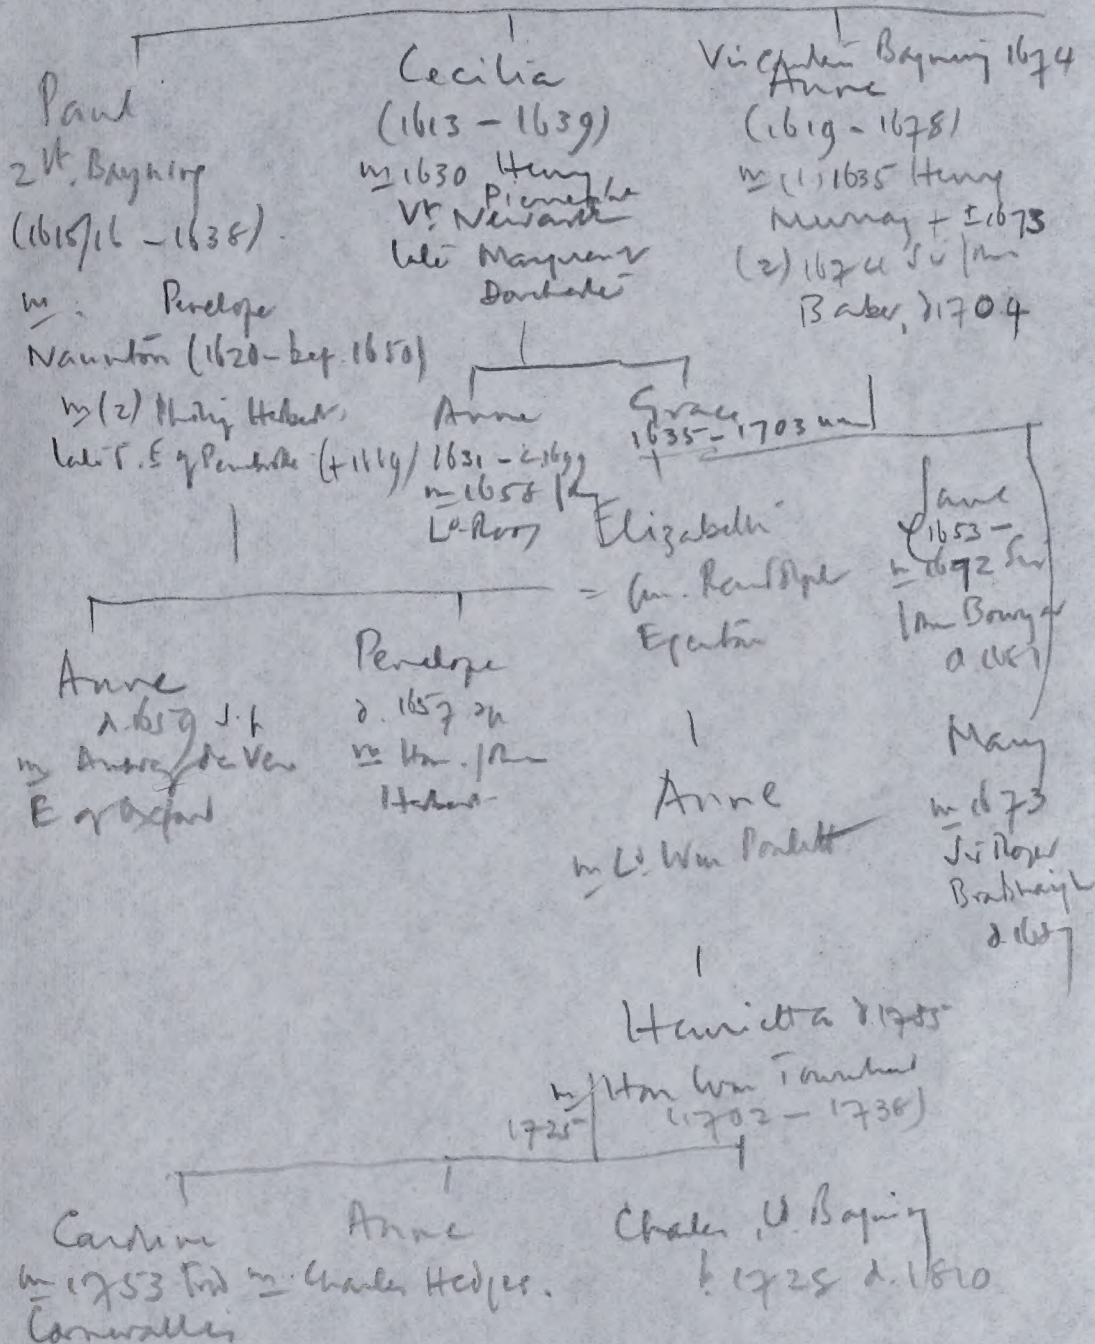 Paul
2 Vt. Bayning
(1615/16 – 1638).
m. Penelope
Naunton (1620 – bef. 1650)
m (2) Philip Herbert,
later 5. E of Pembroke (+1669)
Cecilia
(1613 – 1639)
m 1630 Henry
Pierrepont
Vt. Newark
later Marquess of
Dorchester
Viscountess Bayning 1674
Anne
(1619 – 1678)
m (1) 1635 Henry
Murray + ± 1673
(2) 1674 Sir John
Baber, d 1704
Anne
1631 –
m 1658 John
Ld. Roos
Grace
1635 – 1703 unm
Elizabeth
= Randolph
Egerton
Jane
1653 –
m Sir
John Bowyer
Anne
d. 1659 s.p
m Aubrey de Vere
E of Oxford
Penelope
d. 1657 sp
m Hon. John
Herbert
Anne
m Ld. Wm Poulett
Mary
m 1673
Sir Roger
Bradshaigh
Henrietta d. 1755
m Hon Wm Townshend
1725 (1702 – 1738)
Caroline
m 1753
Cornwallis
Anne
m. Charles Hedges.
Charles, Ld. Bayning
b. 1728 d. 1810